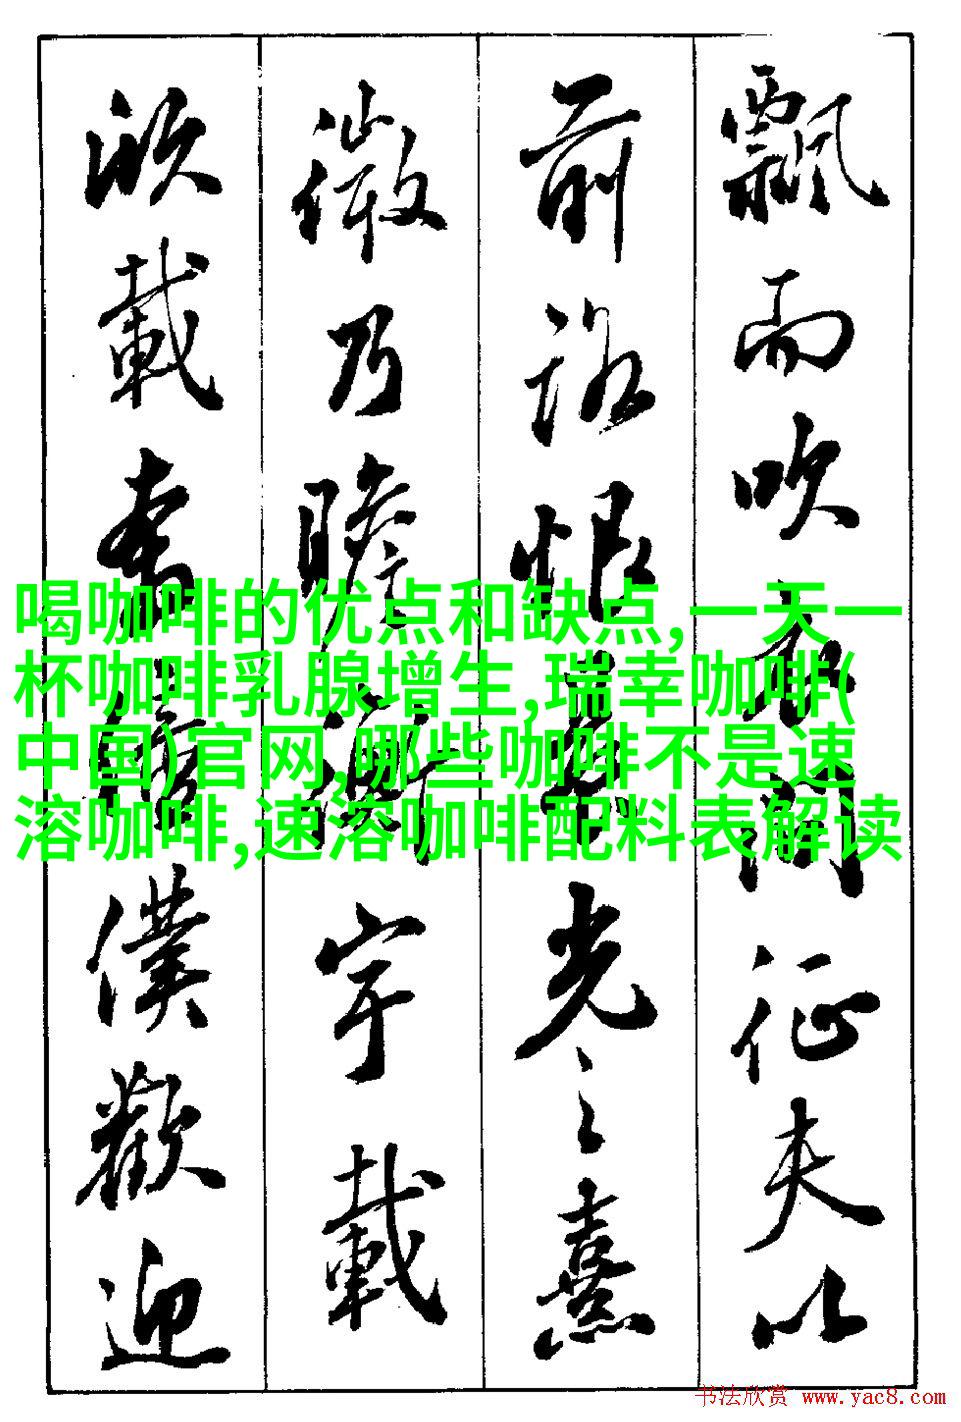 飄而吹衣問征夫以
前路恨晨光之熹
微乃瞻衡宇載
欣載奔僮僕歡迎
喝咖啡的优点和缺点,一天一
杯咖啡乳腺增生,瑞幸咖啡(
中国)官网,哪些咖啡不是速
溶咖啡,速溶咖啡配料表解读
书法欣赏 www.yac8.com